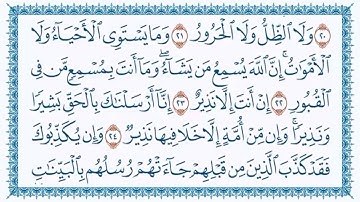 ۝٢٠ وَلَا ٱلظِّلُّ وَلَا ٱلْحَرُورُ ۝٢١ وَمَا يَسْتَوِى ٱلْأَحْيَآءُ وَلَا
ٱلْأَمْوَٰتُ ۚ إِنَّ ٱللَّهَ يُسْمِعُ مَن يَشَآءُ ۖ وَمَآ أَنتَ بِمُسْمِعٍ مَّن فِى
ٱلْقُبُورِ ۝٢٢ إِنْ أَنتَ إِلَّا نَذِيرٌ ۝٢٣ إِنَّآ أَرْسَلْنَٰكَ بِٱلْحَقِّ بَشِيرًا
وَنَذِيرًا ۚ وَإِن مِّنْ أُمَّةٍ إِلَّا خَلَا فِيهَا نَذِيرٌ ۝٢٤ وَإِن يُكَذِّبُوكَ
فَقَدْ كَذَّبَ ٱلَّذِينَ مِن قَبْلِهِمْ جَآءَتْهُمْ رُسُلُهُم بِٱلْبَيِّنَٰتِ